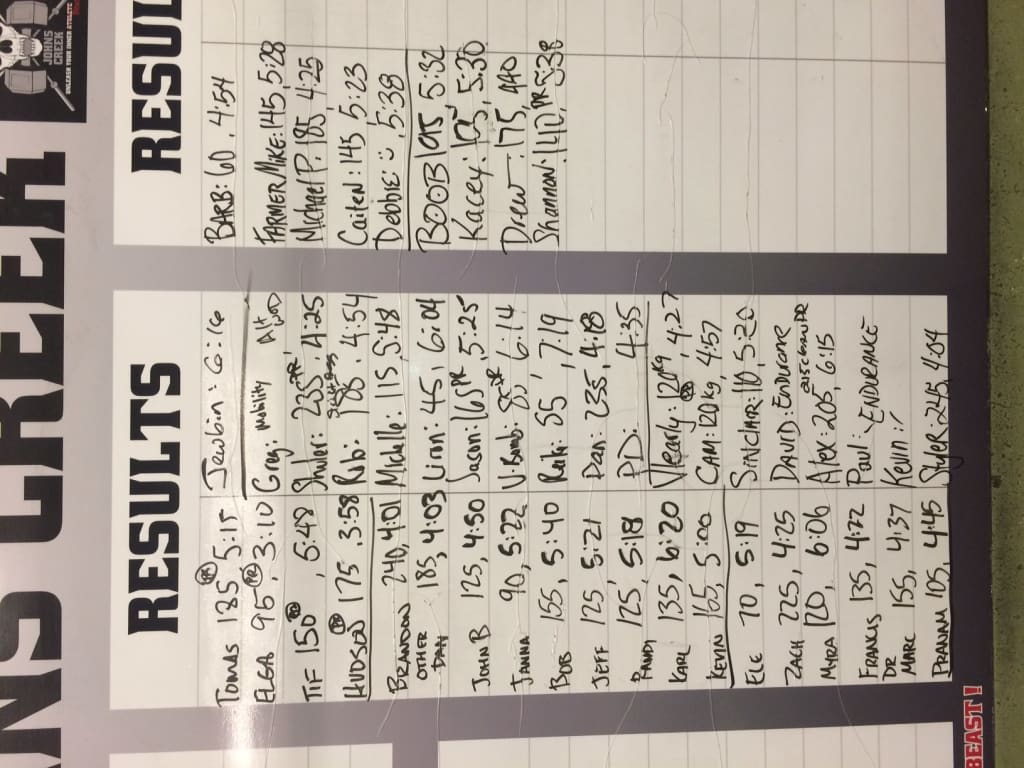 JOHNS
CREEK
UNLEASH YOUR INNER ATHLETE
NS CREEK
RESULTS
TOMAS 185 PR 5:15
ELGA 95 PR, 3:10
TIF 150 PR, 5:48
HUDSON PR 175 3:58
BRANDON 240, 4:01
OTHER DAN 185, 4:03
JOHN B 125, 4:50
JANNA 90, 5:22
BOB 155, 5:40
JEFF 125, 5:21
RANDY 125, 5:18
KARL 135, 6:20
KEVIN 165, 5:00
ELE 70, 5:19
ZACH 225, 4:25
MYRA 120, 6:06
FRANCIS 135, 4:22
DR MARC 155, 4:37
PRANAM 105, 4:45
6:16
Greg: Mobility Alt WOD
235 PR, 4:25
Rob: 185, 4:54
Michelle: 115, 5:48
45, 6:04
Jason: 165 PR, 5:25
6:14
35, 7:19
Dan: 235, 4:18
PD: 4:35
120 kg, 4:27
CAM: 120 kg, 4:57
SINCLAIR: 110, 5:20
DAVID: ENDURANCE
Alex: 205, 6:15
Paul: ENDURANCE
Kevin:
Skyler: 245, 4:04
RESUL
BARB: 60, 4:54
FARMER MIKE: 145, 5:28
Michael P: 185, 4:25
Caiten: 145 5:23
Debbie: 5:38
BOOB 195 5:32
Kacey: 5:30
Drew: 175,
Shannon: 140, PR 5:38
BEAST!